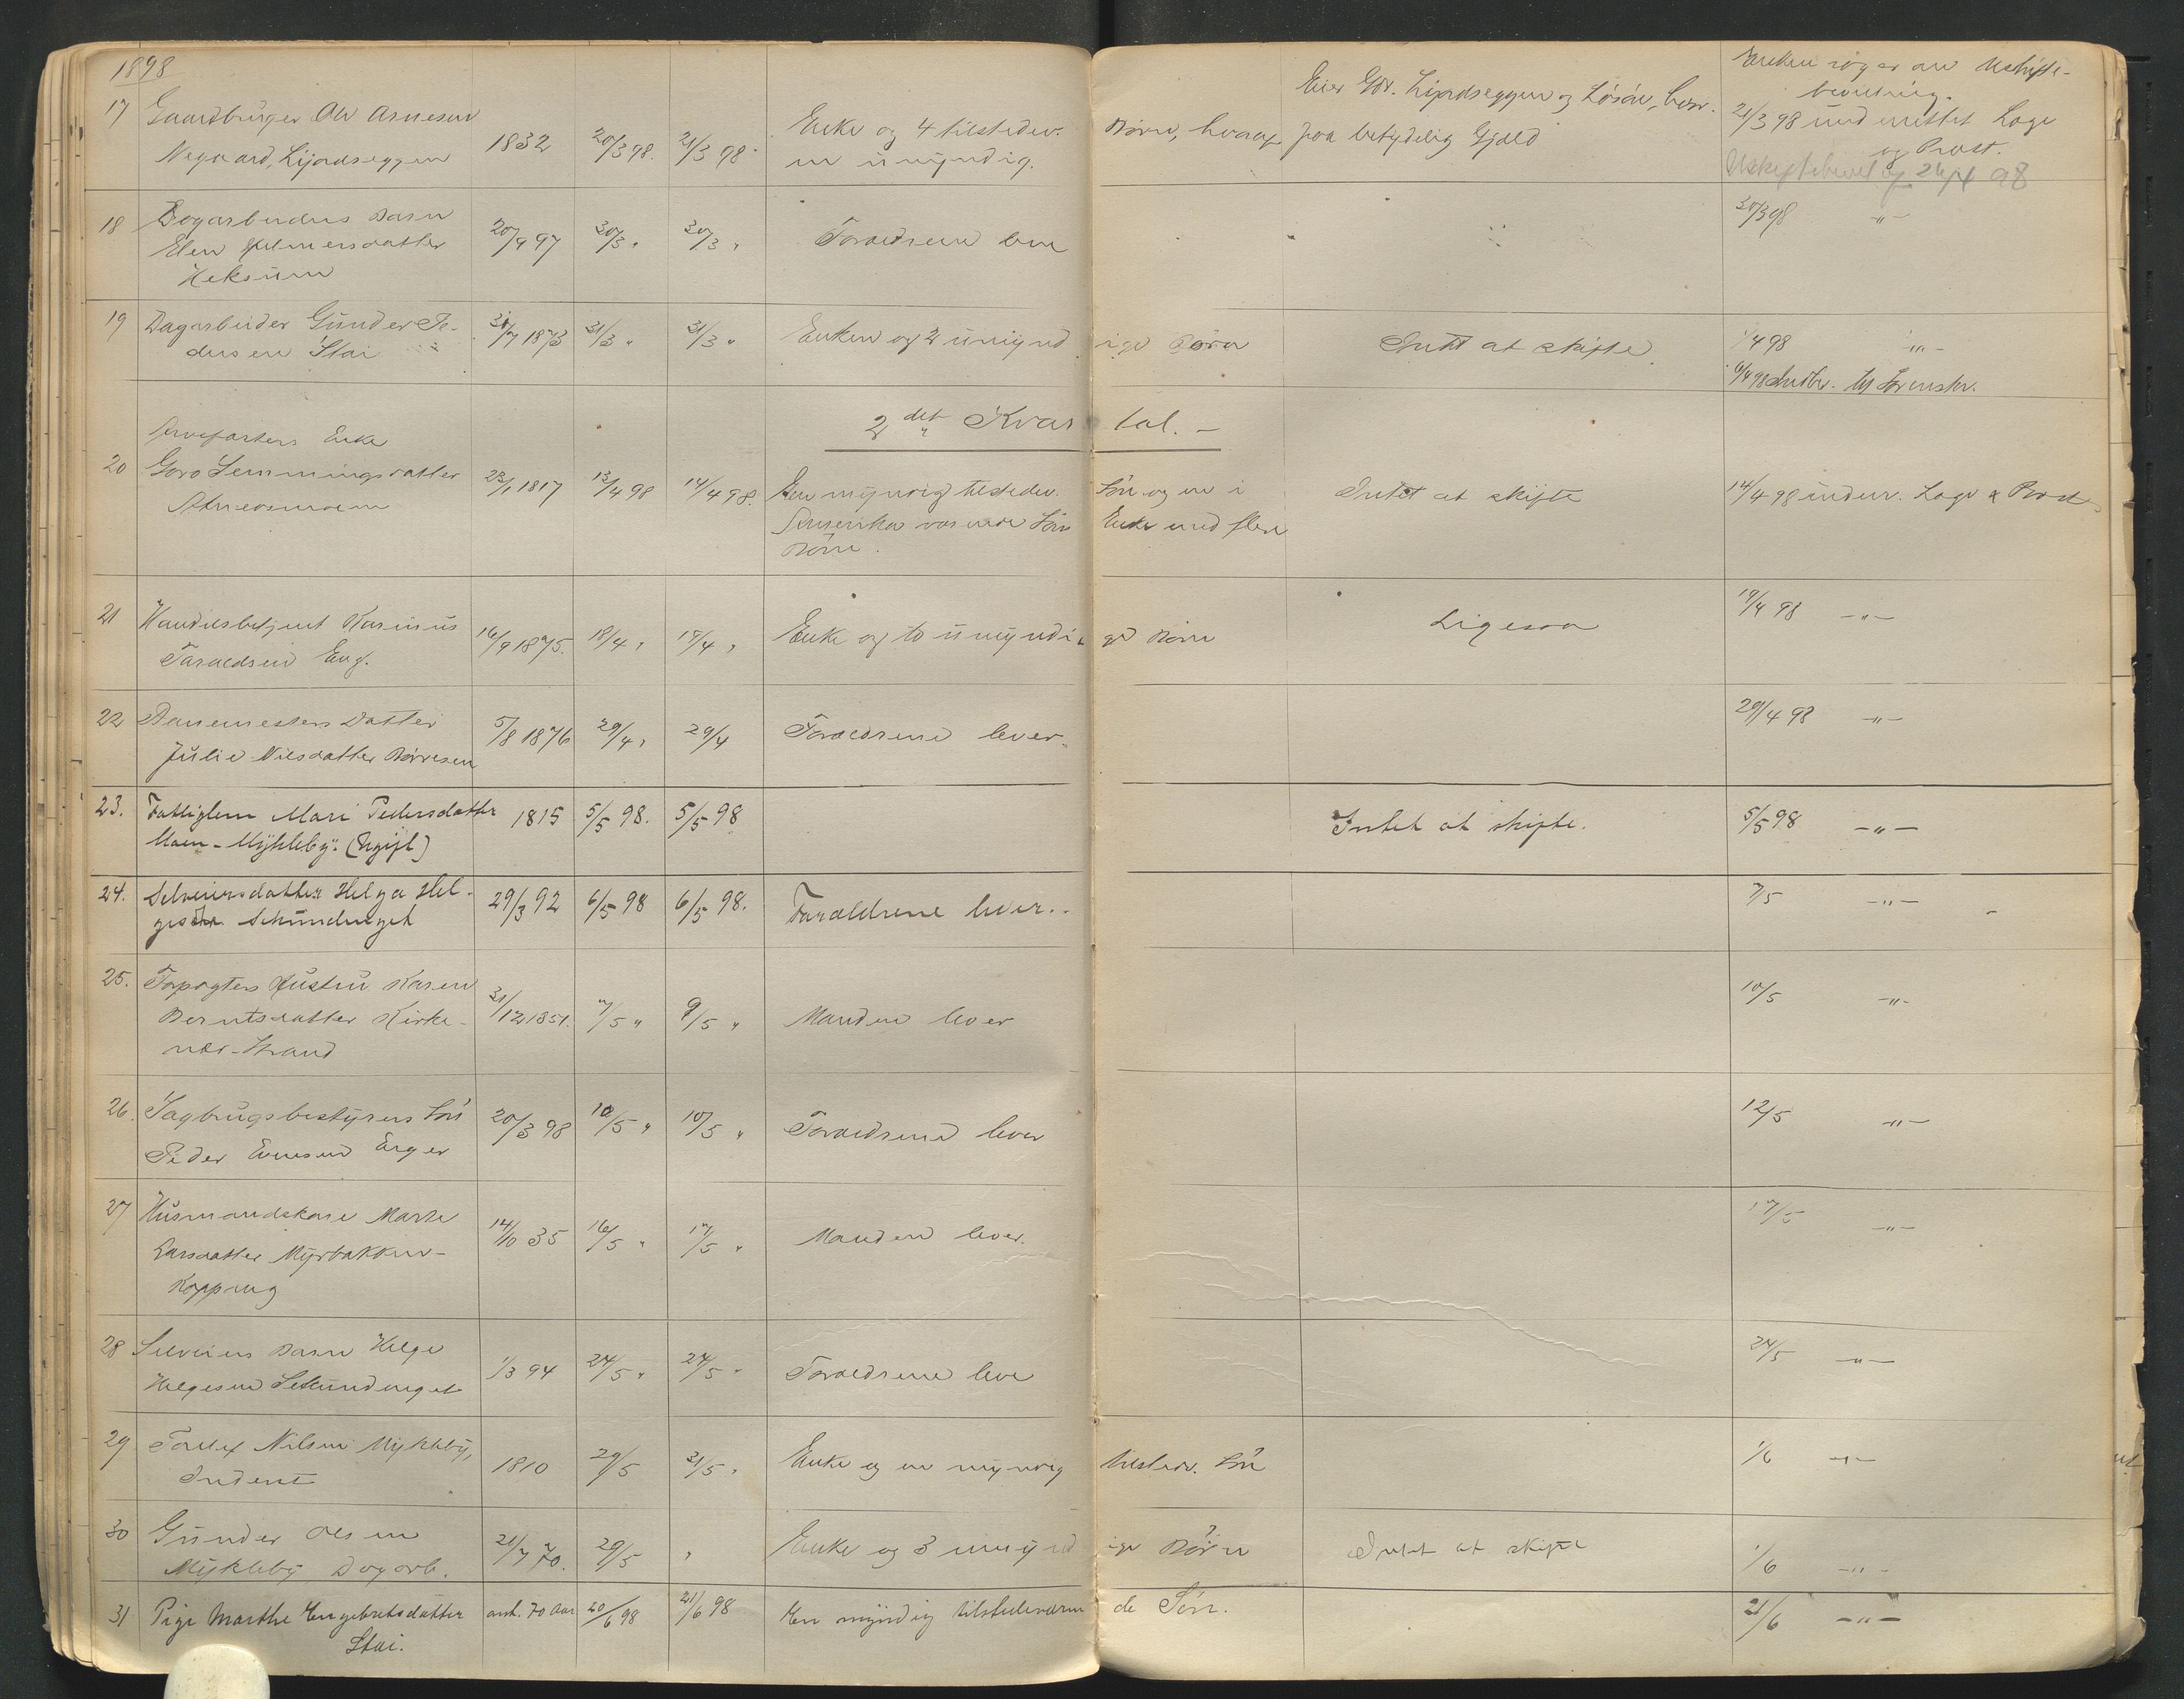 1898
17 Gaardbruger Ole Arnesen
Negaard, Lijordseggen 1832 20/3 98. 21/3 98. Enke og 4 tilstedev. Børn, hvoraf
en umyndig.
Eier Gbr. Lijordseggen og Løsøre, hvor-
paa betydelig Gjæld
Enken søger om Uskifte-
bevilling.
21/3 98 underrettet Lage
og Provst.
18 Dagarbeiders Barn
Elen Hilmersdatter
Heksum 20/9 97 30/3 " 30/3 " Forældrene leve 30/3 98 -"-
19 Dagarbeider Gunder Pe-
dersen Stai 31/7 1873 31/3 " 31/3 " Enken og 2 umyndige Børn Intet at skifte. 1/4 98 -"-
2det Kvartal. -
Enke
20 Goro Lemmingsdatter
23/1 1817 13/4 98 14/4 98. En myndig tilstedev. Søn og en i
Amerika værende Søn Enke med flere
Børn.
Intet at skifte 14/4 98 underr. Lage & Provst
21 Handelsbetjent Karinus
Taraldsen Eng. 16/9 1875. 18/4 " 18/4 " Enke og to umyndige Børn Ligesaa 19/4 98 -"-
22 Banemesters Datter
Julie Nilsdatter Børresen 5/8 1876 29/4 " 29/4 Forældrene lever. 29/4 98 -"-
23. Fattiglem Mari Pedersdatter
Moen-Mykleby. (Ugift) 1815 5/5 98. 5/5 98 Intet at skifte. 5/5 98 -"-
24. Selveiersdatter Helga Hel-
gesdtr. Sekundenget 29/3 92 6/5 98 6/5 98. Forældrene lever. 7/5 -"-
25. Forpagters Hustru Karen
Berntsdatter Kirke-
nær-Strand 31/12 1851. 7/5 " 9/5 " Manden lever 10/5 -"-
26. Sagbrugsbestyrers Søn
Peder Evensen Enger 20/3 98 10/5 " 10/5 " Forældrene lever 12/5 -"-
27 Husmandskone Marte
Larsdatter Myrbakken-
Koppang 14/10 35 16/5 " 17/5 " Manden lever. 17/5 -"-
28 Selveiers Barn Helge
Helgesen Sekundenget 1/3 94 24/5 " 24/5 " Forældrene leve 24/5 -"-
29 Nilsen Mykleby,
Inderst 1810 29/5 31/5 " Enke og en myndig tilstedv. Søn 1/6 -"-
30 Gunder Olsen
Mykleby Dagarb. 21/7 70. 29/5 " Enke og 3 umyndige Børn Intet at skifte 1/6 -"-
31 Pige Marthe Engebretsdatter
Stai. ant. 70 Aar 20/6 98 21/6 98 En myndig tilstedeværende Søn. 21/6 -"-